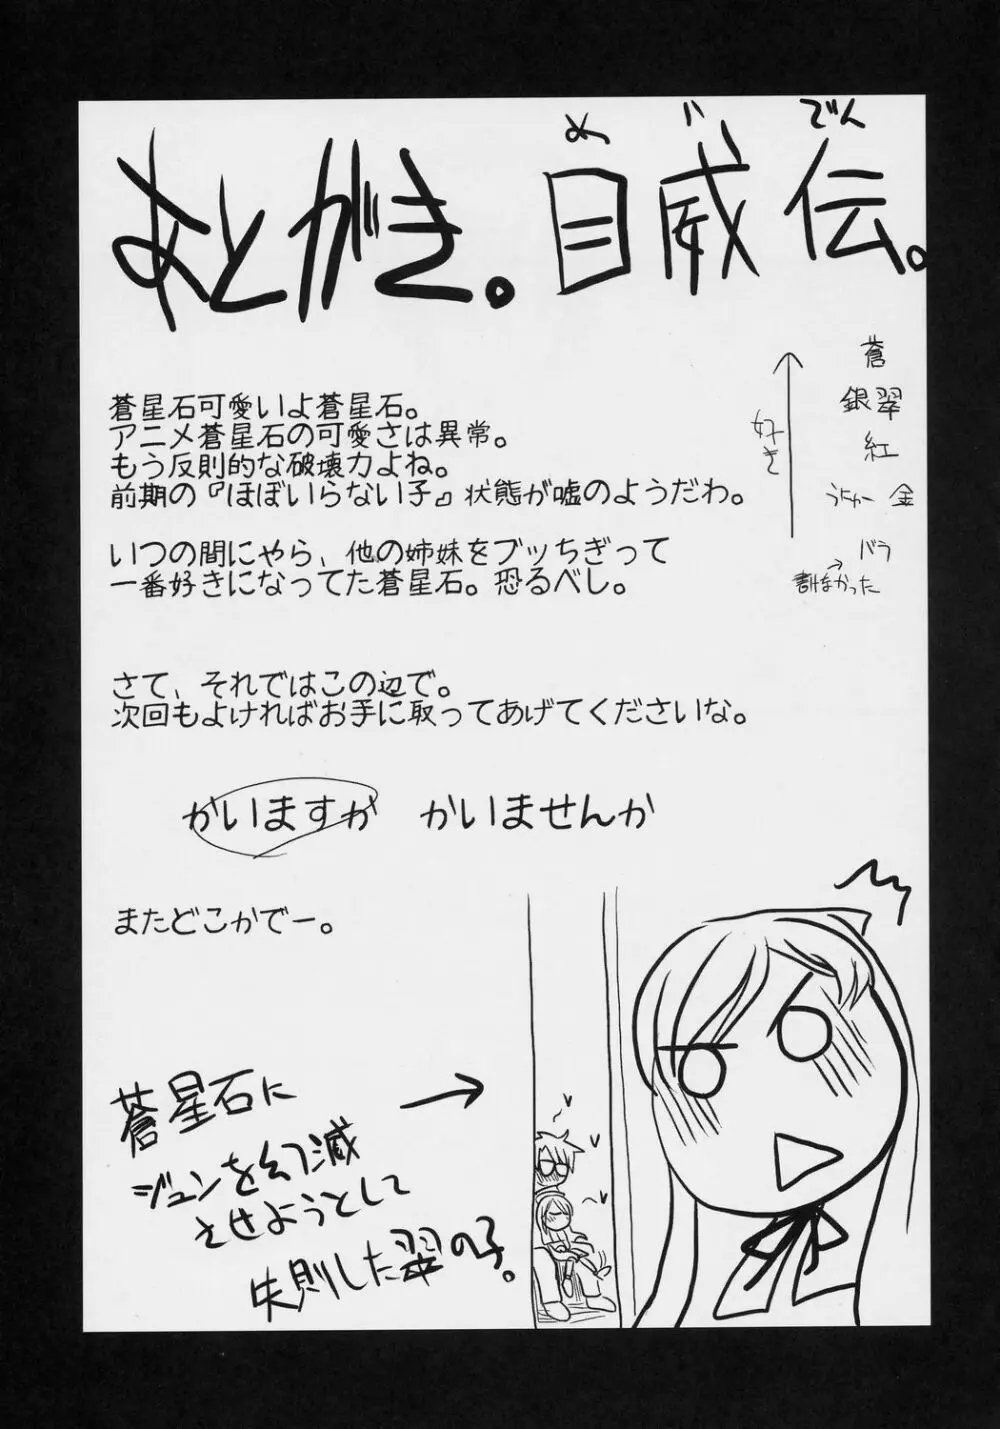 あとがき。目威伝。
めいでん
蒼星石可愛いよ蒼星石。
アニメ蒼星石の可愛さは異常。
もう反則的な破壊力よね。
前期の『ほぼいらない子』状態が嘘のようだわ。
いつの間にやら、他の姉妹をブッちぎって
一番好きになってた蒼星石。恐るべし。
好き
蒼
銀翠
紅
うにゅー 金
バラ
書けなかった
さて、それではこの辺で。
次回もよければお手に取ってあげてくださいな。
かいますか かいませんか
またどこかでー。
蒼星石に
ジュンを幻滅
させようとして
失則した翠の子。